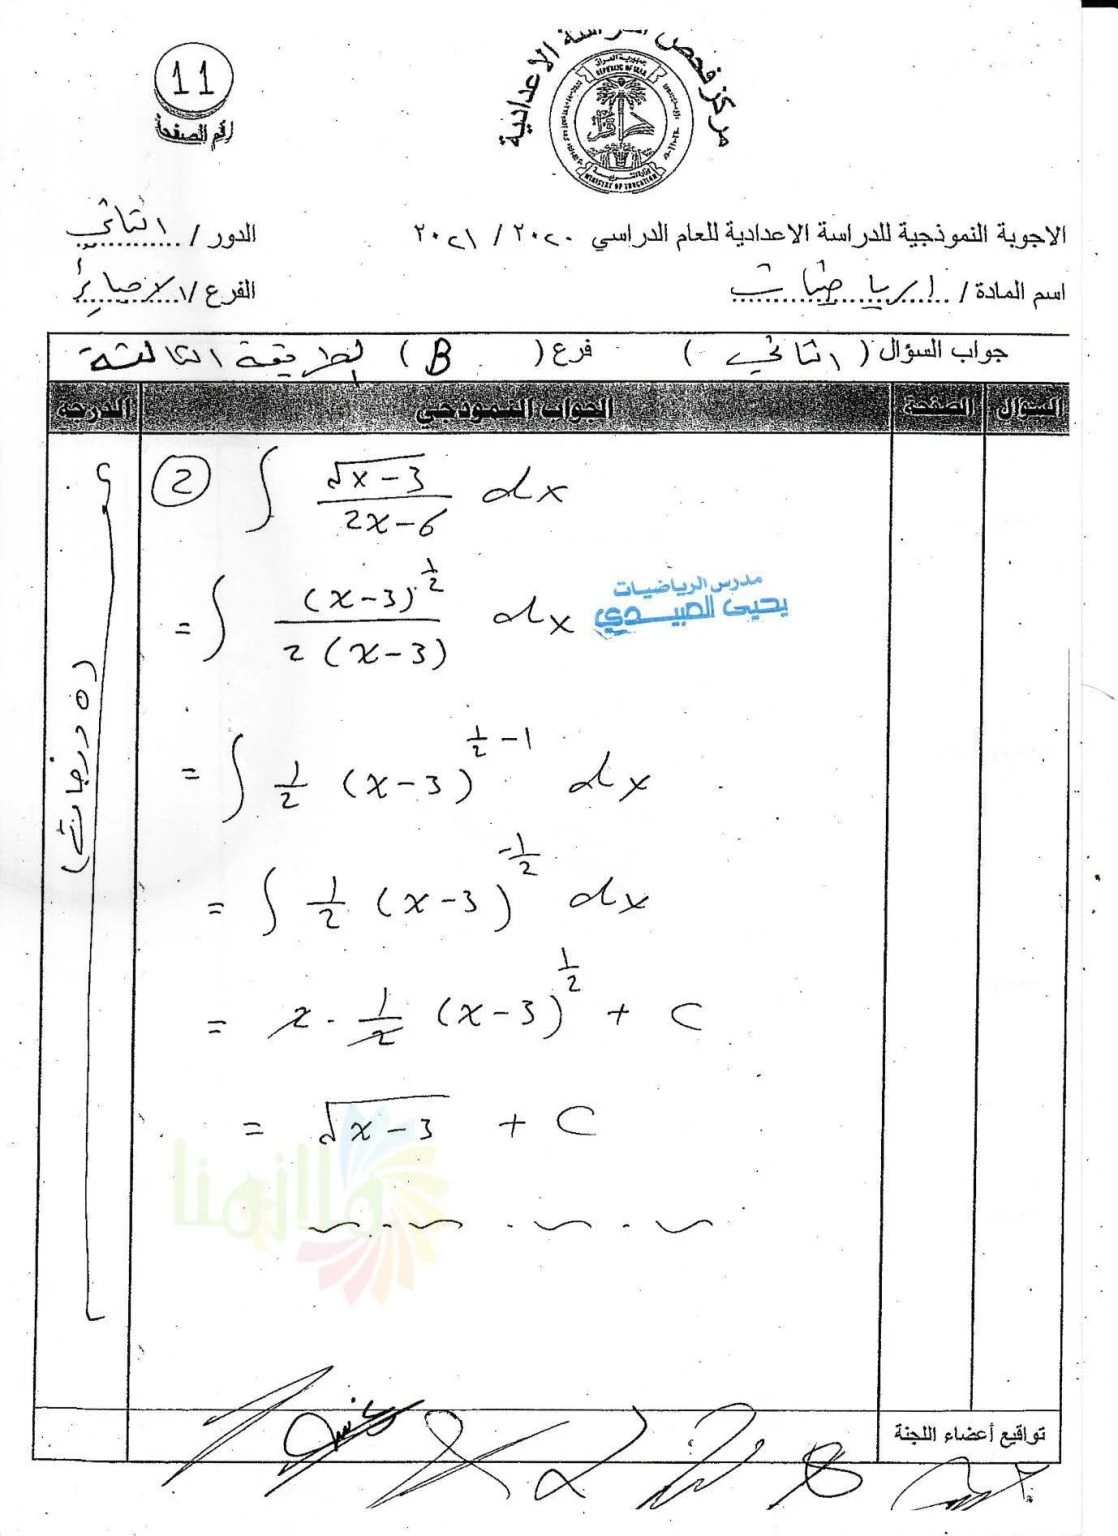 مركز فحص الدراسة الاعدادية
جمهورية العراق
REPUBLIC OF IRAQ
وزارة التربية
MINISTRY OF EDUCATION
11
رقم الصفحة
الاجوبة النموذجية للدراسة الاعدادية للعام الدراسي ٢٠٢٠ / ٢٠٢١
الدور / الثاني
اسم المادة / الرياضيات
الفرع / الاحيائي
جواب السؤال ( الثاني ) فرع ( B ) الطريقة الثالثة
السؤال الصفحة الجواب النموذجي الدرجة
② ∫ √(x-3) / (2x-6) dx
= ∫ (x-3)^(1/2) / 2(x-3) dx
مدرس الرياضيات
يحيى العبيدي
= ∫ 1/2 (x-3)^(1/2 -1) dx
= ∫ 1/2 (x-3)^(-1/2) dx
= 2 · 1/2 (x-3)^(1/2) + C
= √(x-3) + C
(٥ درجات)
ملازمنا
تواقيع أعضاء اللجنة